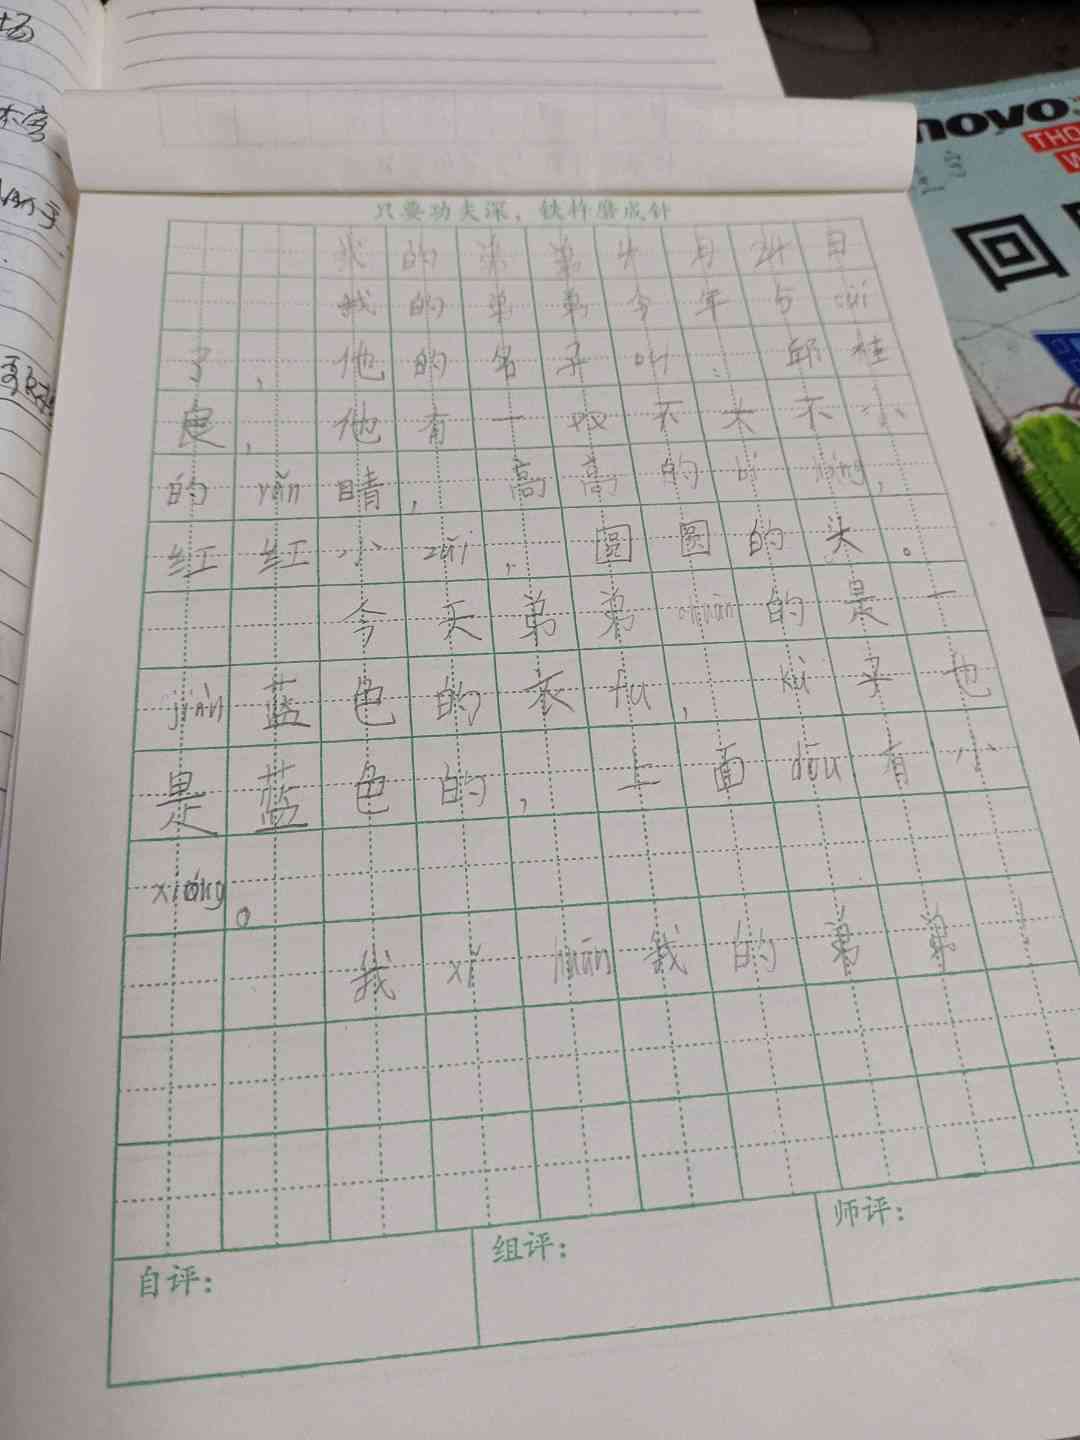 只要功夫深，铁杵磨成针
我的弟弟 月24日
我的弟弟今年5cùi
了，他的名子叫：邱桂
他有一双不大不小
的yǎn睛，高高的bí
红红小zuǐ，圆圆的头。
今天弟弟chuān的是一
jiàn蓝色的衣fu，kù子也
是蓝色的，上面dōu有小
xióng。
我xǐ huān我的弟弟！
自评：
组评：
师评：
novo